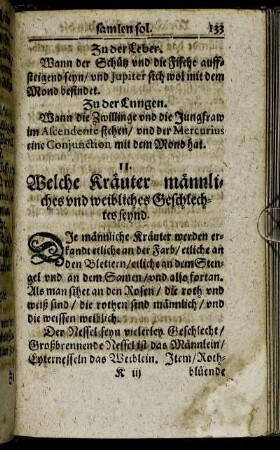 samlen sol. 133
Zu der Leber.
Wann der Schütz vnd die Fische auff-
steigend seyn/ vnd Jupiter sich wol mit dem
Mond befindet.
Zu der Lungen.
Wann die Zwillinge vnd die Jungfraw
im Ascendente stehen/ vnd der Mercurius
eine Conjunction mit dem Mond hat.
II.
Welche Kräuter männli-
ches vnd weibliches Geschlech-
tes seynd.
Die männliche Kräuter werden er-
kandt etliche an der Farb/ etliche an
den Blettern/ etliche an dem Sten-
gel vnd an dem Samen/ vnd also fortan.
Als man sihet an den Rosen/ die roth vnd
weiß sind/ die rothen sind männlich/ vnd
die weissen weiblich.
Der Nessel seyn vielerley Geschlecht/
Großbrennende Nessel ist das Männlein/
Eyternesseln das Weiblein. Item/ Roth-
K iij blüende